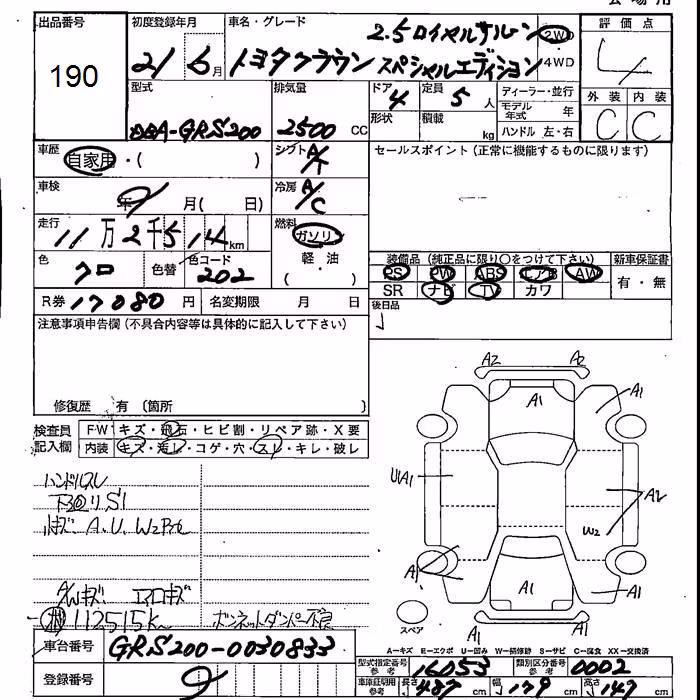 出品番号 初度登録年月 車名・グレード 評価点
190
21 6月 トヨタクラウン 2.5 ロイヤルサルーン 2WD
スペシャルエディション 4WD
4
型式 排気量 ドア 定員 ディーラー・並行 外装 内装
DBA-GRS200 2500 CC 4 5人 モデル年式 年 C C
形状 積載 kg ハンドル 左・右
車歴 自家用・( ) シフト A/T セールスポイント(正常に機能するものに限ります)
車検 年 月( 日) 冷房 A/C
走行 11万2千514km 燃料 ガソリン
軽・油
( )
色 クロ 色替 色コード 202
装備品(純正品に限り○をつけて下さい) 新車保証書
PS PW ABS エアB AW 有・無
SR ナビ TV カワ
R券 17080円 名変期限 月 日 後日品
注意事項申告欄(不具合内容等は具体的に記入して下さい)
修復歴 有 (箇所 )
検査員記入欄 FW キズ・飛石・ヒビ割・リペア跡・X要
内装 キズ・汚レ・コゲ・穴・スレ・キレ・破レ
ハンドルスレ
下回りS1
A.U.W2
A/Wキズ エアロキズ
112515K ボンネットダンパー不良
A2 A2
A1 A1
U1A1 A2
W2
A1 A1 A1
A1 A1
スペア
A-キズ E-エクボ U-凹み W-補修跡 S-サビ C-腐食 XX-交換済
車台番号 GRS200-0030833
型式指定番号 参考 16053 類別区分番号 参考 0002
登録番号
車庫証明用 参考 長さ 487cm 幅 179cm 高さ 147cm